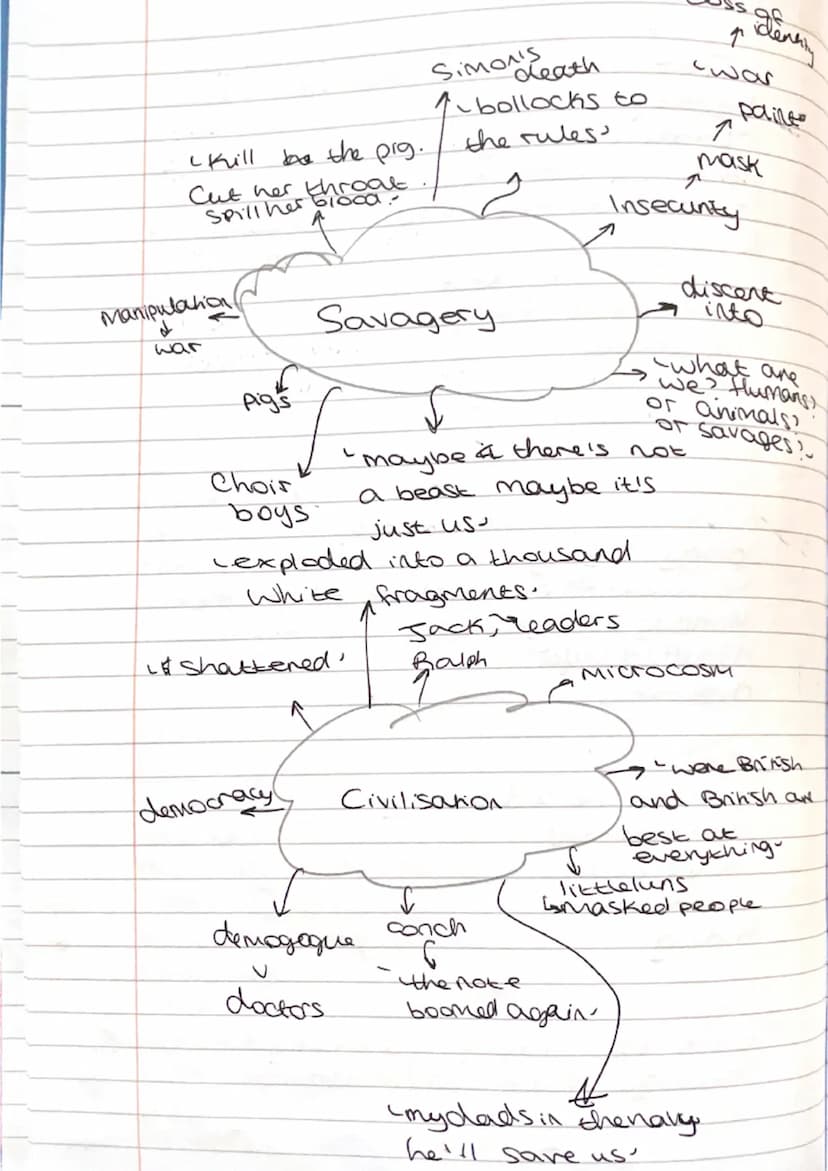 loss of
identity
'war
paint'
mask
Insecurity
Simon's
death
'bollocks to
the rules'
'Kill the pig.
Cut her throat.
Spill her blood.'
Savagery
discent
into
manipulation
war
'what are
we? Humans?
or animals?
or savages?'
pigs
Choir
boys
'maybe there's not
a beast maybe it's
just us'
'exploded into a thousand
white fragments.'
Jack, leaders
Ralph
'shattered'
MICROCOSM
Civilisation
'were British
and British are
best at
everything'
democracy
littleluns
masked people
demogogue
doctors
conch
'the note
boomed again'
'my dads in the navy
he'll save us'